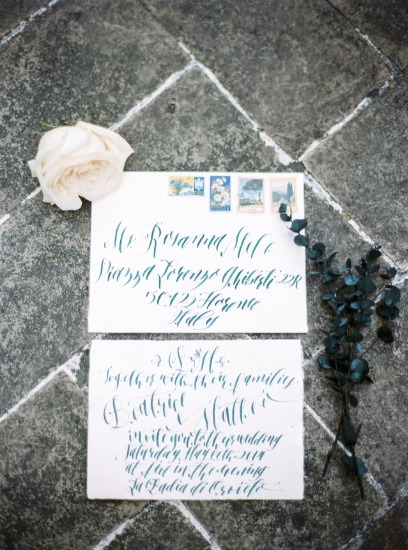 Ms. Rosanna Melo
Piazza Lorenzo Ghiberti 22R
50125 Florence
Italy
Together with their families
Beatrice Matteo
invite you to their wedding
Saturday, May
at in the evening
La Badia di Orvieto